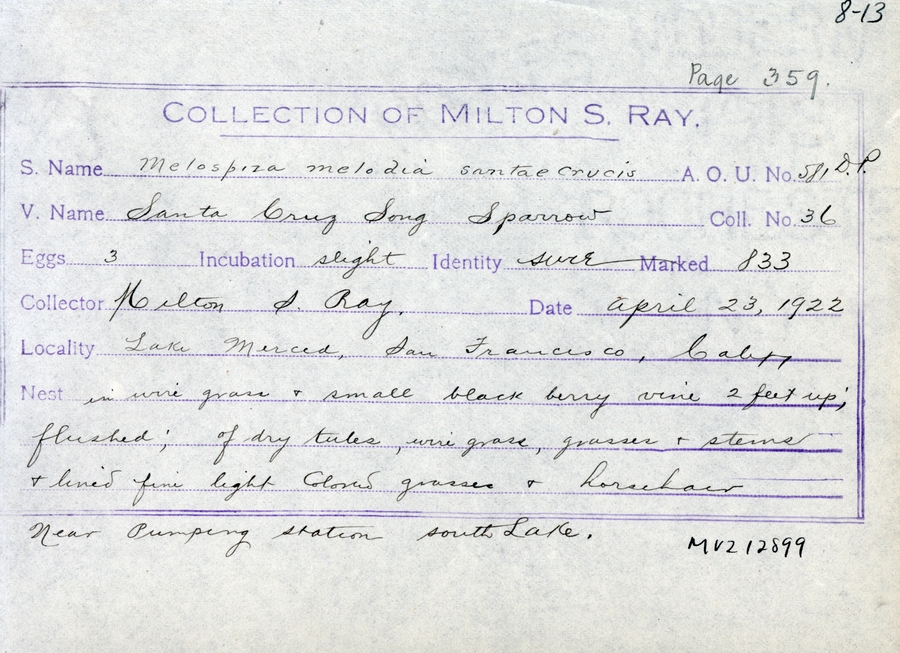 8-13
Page 359.
COLLECTION OF MILTON S. RAY.
S. Name Melospiza melodia santaecrucis A. O. U. No. 581 D.P.
V. Name Santa Cruz Song Sparrow Coll. No. 36
Eggs 3 Incubation slight Identity sure Marked 833
Collector Milton S. Ray. Date april 23, 1922
Locality Lake Merced, San Francisco, Calif
Nest in wire grass + small black berry vine 2 feet up;
flushed; of dry tules, wire grass, grasses + stems
+ lined fine light Colored grasses + horsehair
Near Pumping station south Lake.
MVZ 12899